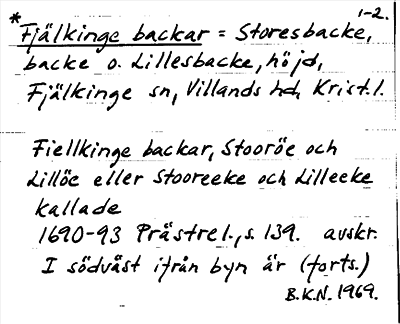 1-2.
*Fjälkinge backar = Storesbacke,
backe o. Lillesbacke, höjd,
Fjälkinge sn, Villands hd, Krist. l.
Fiellkinge backar, Stooröe och
Lillöe eller Stooreeke och Lilleeke
kallade
1690-93 Prästrel., s. 139. avskr.
I södväst ifrån byn är (forts.)
B.K.N. 1969.